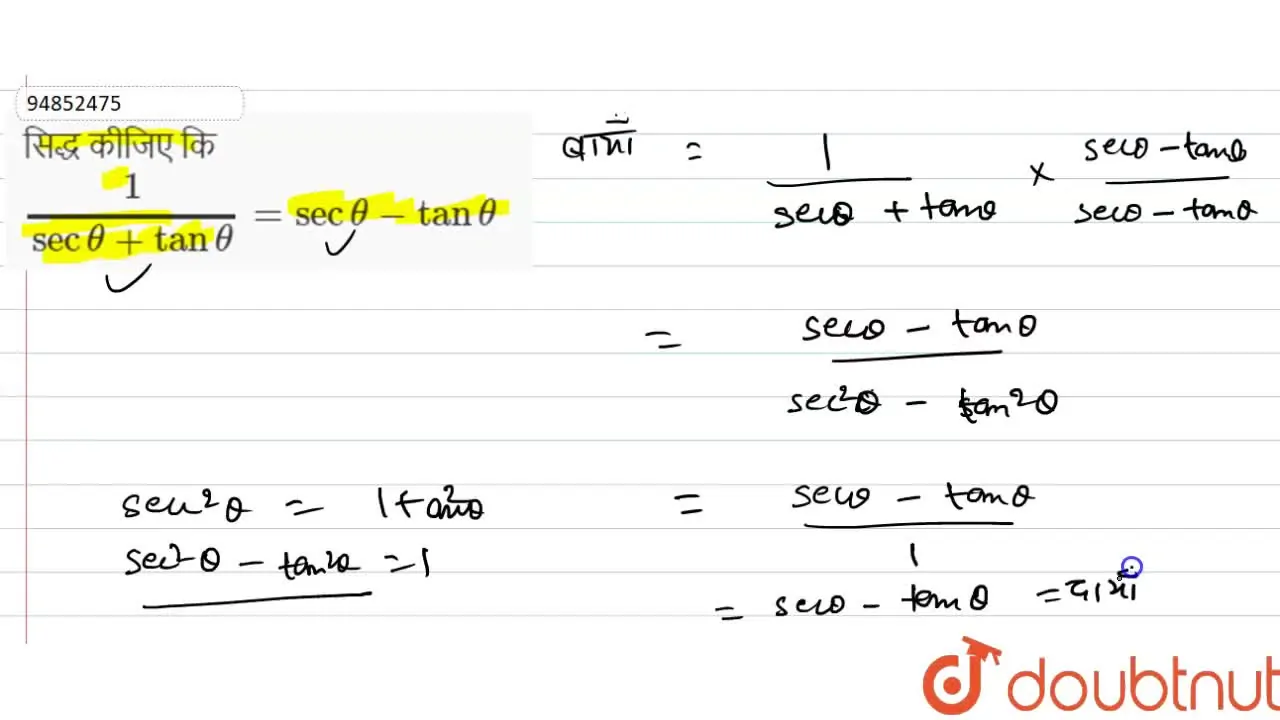 94852475
सिद्ध कीजिए कि
1
secθ + tanθ
= secθ − tanθ
बायां = 1 × secθ − tanθ
secθ + tanθ secθ − tanθ
= secθ − tanθ
sec²θ − tan²θ
sec²θ = 1 + tan²θ
sec²θ − tan²θ = 1
= secθ − tanθ
1
= secθ − tanθ = दायां
doubtnut